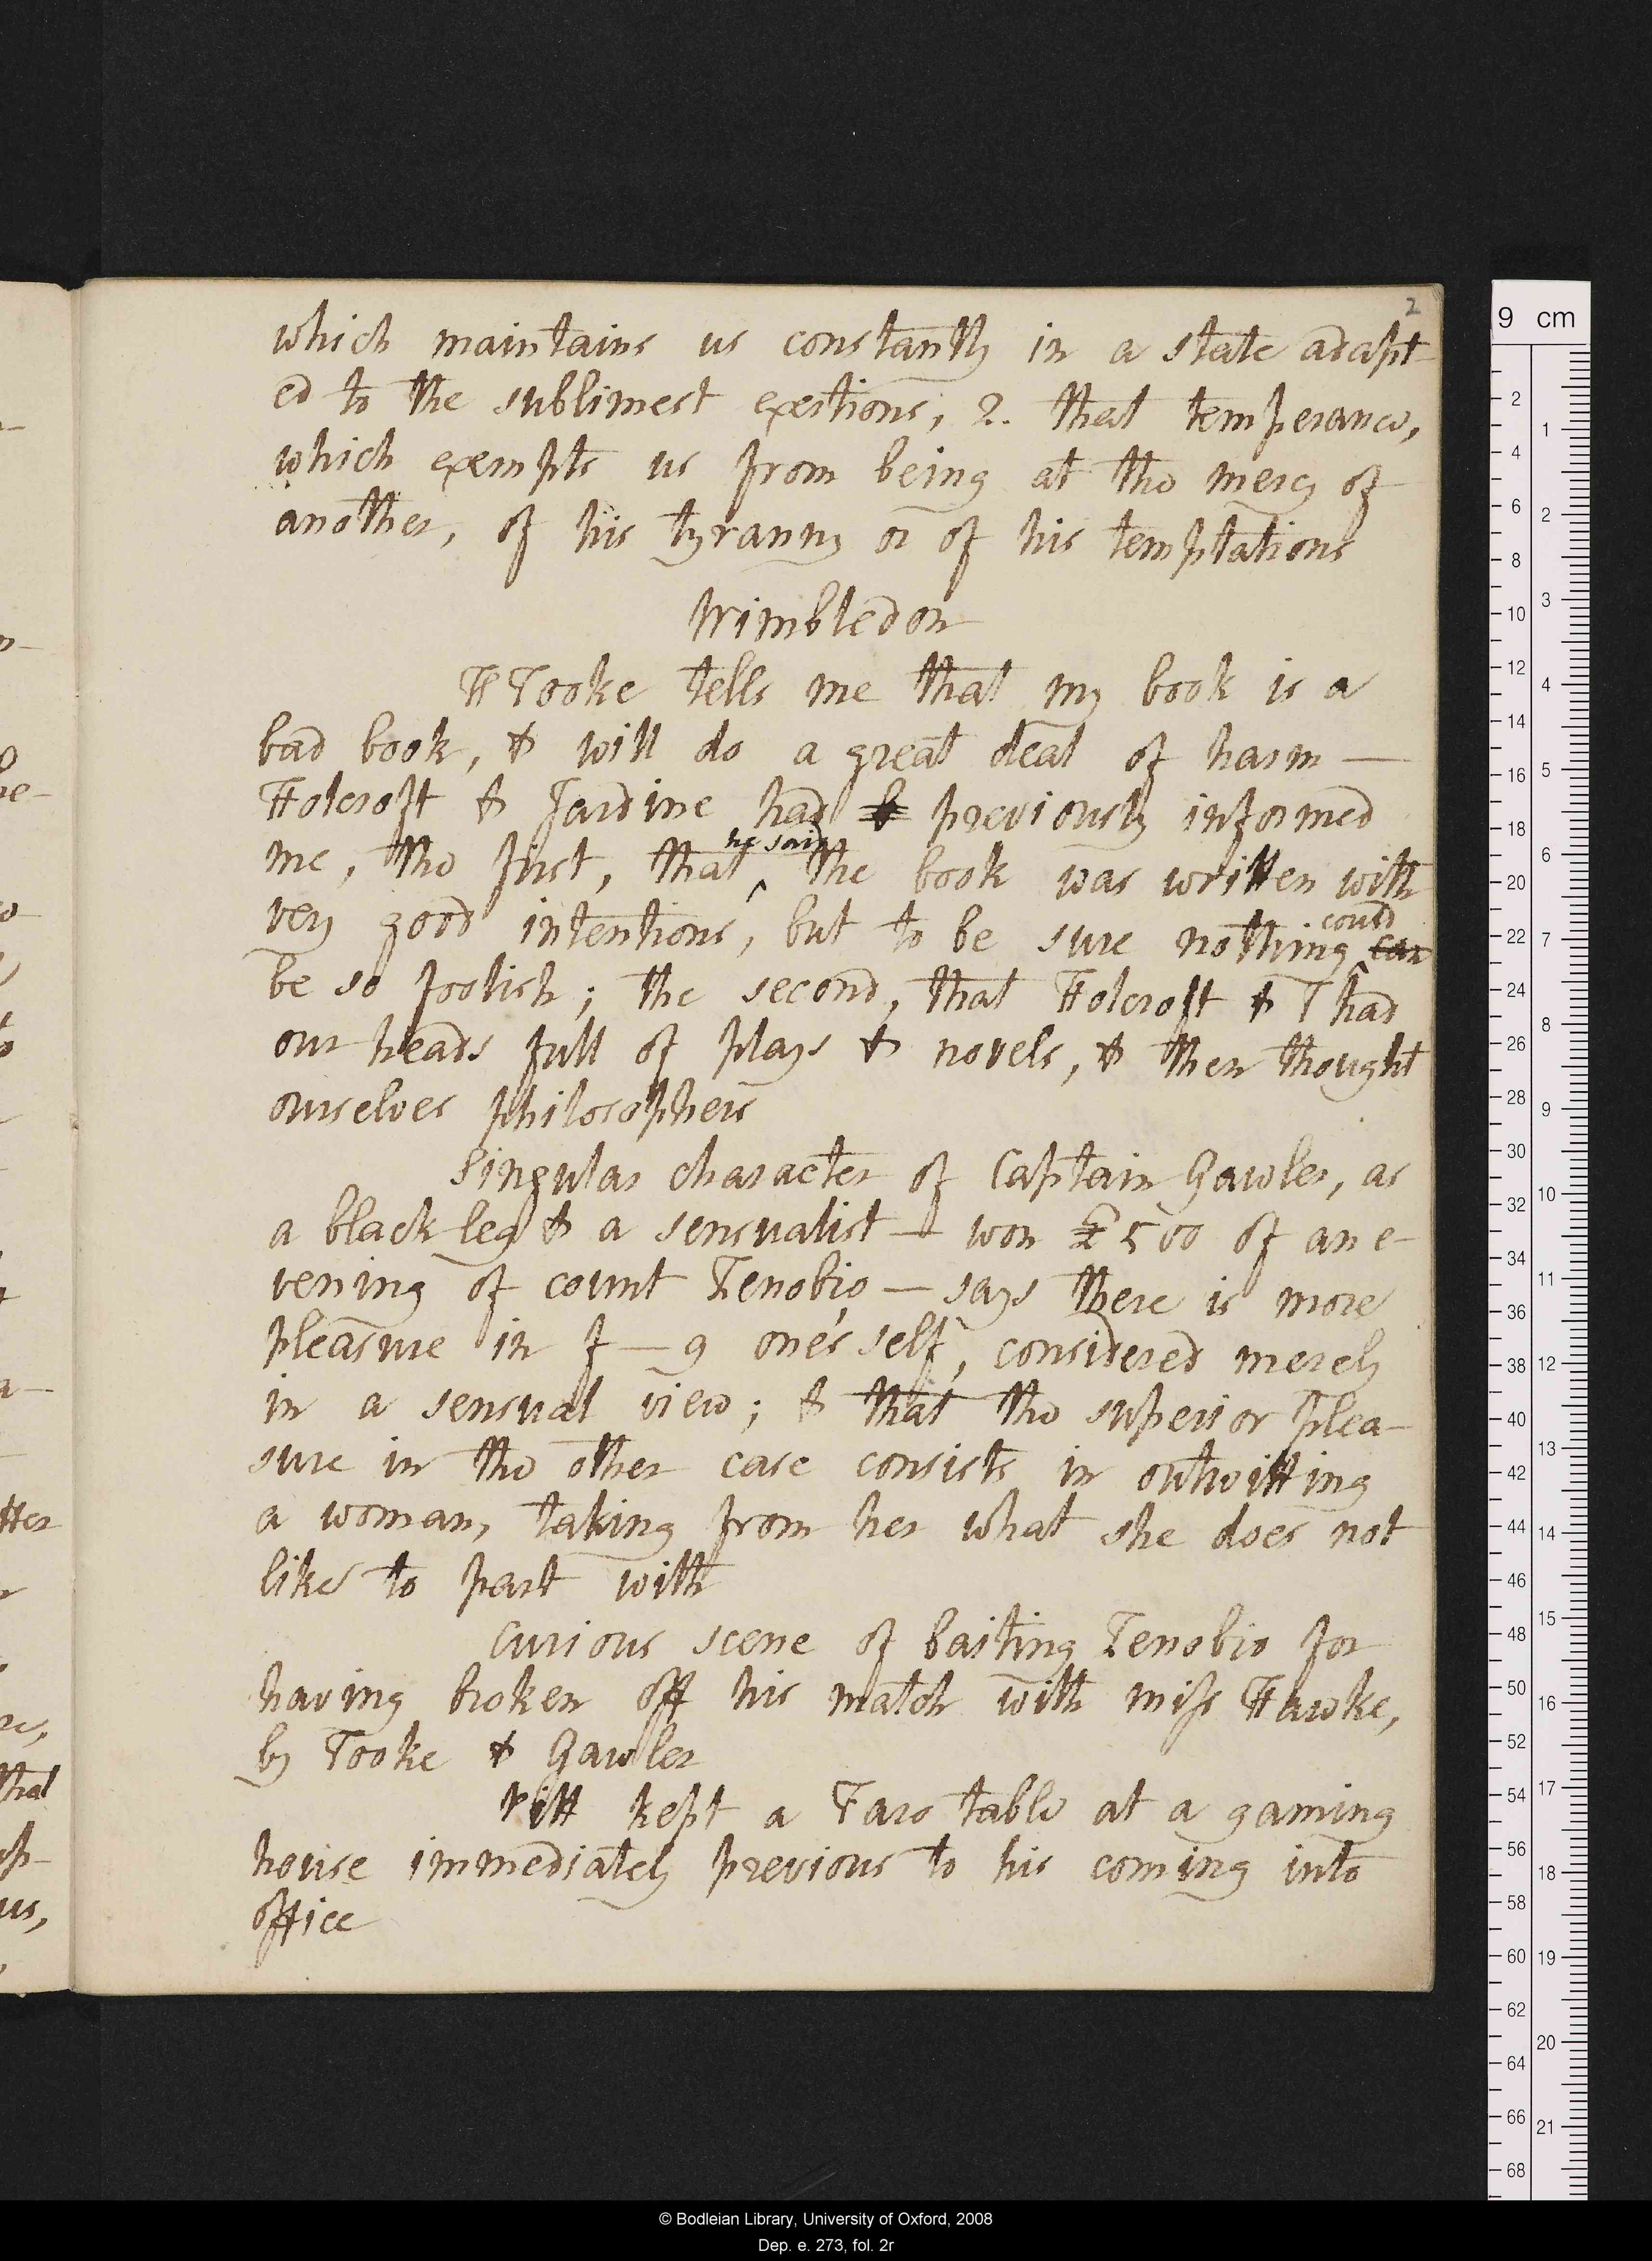 2
which maintains us constantly in a state adapt-
ed to the sublimest exertions, 2. that temperance,
which exempts us from being at the mercy of
another, of his tyranny or of his temptations
Wimbledon
H Tooke tells me that my book is a
bad book, & will do a great deal of harm —
Holcroft & Jardine had previously informed
he said
me, the first, that ^ the book was written with
could
very good intentions, but to be sure nothing ^ can
be so foolish; the second, that Holcroft & I had
our heads full of plays & novels, & then thought
ourselves philosophers
Singular character of Captain Gawler, as
a black leg & a sensualist — won £500 of an e-
vening of count Zenobio — says there is more
pleasure in f—g one's self, considered merely
in a sensual view; & that the superior plea-
sure in the other case consists in outwitting
a woman, taking from her what she does not
like to part with
Curious scene of baiting Zenobio for
having broken off his match with miss Hawke,
by Tooke & Gawler
Pitt kept a Faro table at a gaming
house immediately previous to his coming into
office
9 cm
2
4
6
8
10
12
14
16
18
20
22
24
26
28
30
32
34
36
38
40
42
44
46
48
50
52
54
56
58
60
62
64
66
68
1
2
3
4
5
6
7
8
9
10
11
12
13
14
15
16
17
18
19
20
21
© Bodleian Library, University of Oxford, 2008
Dep. e. 273, fol. 2r